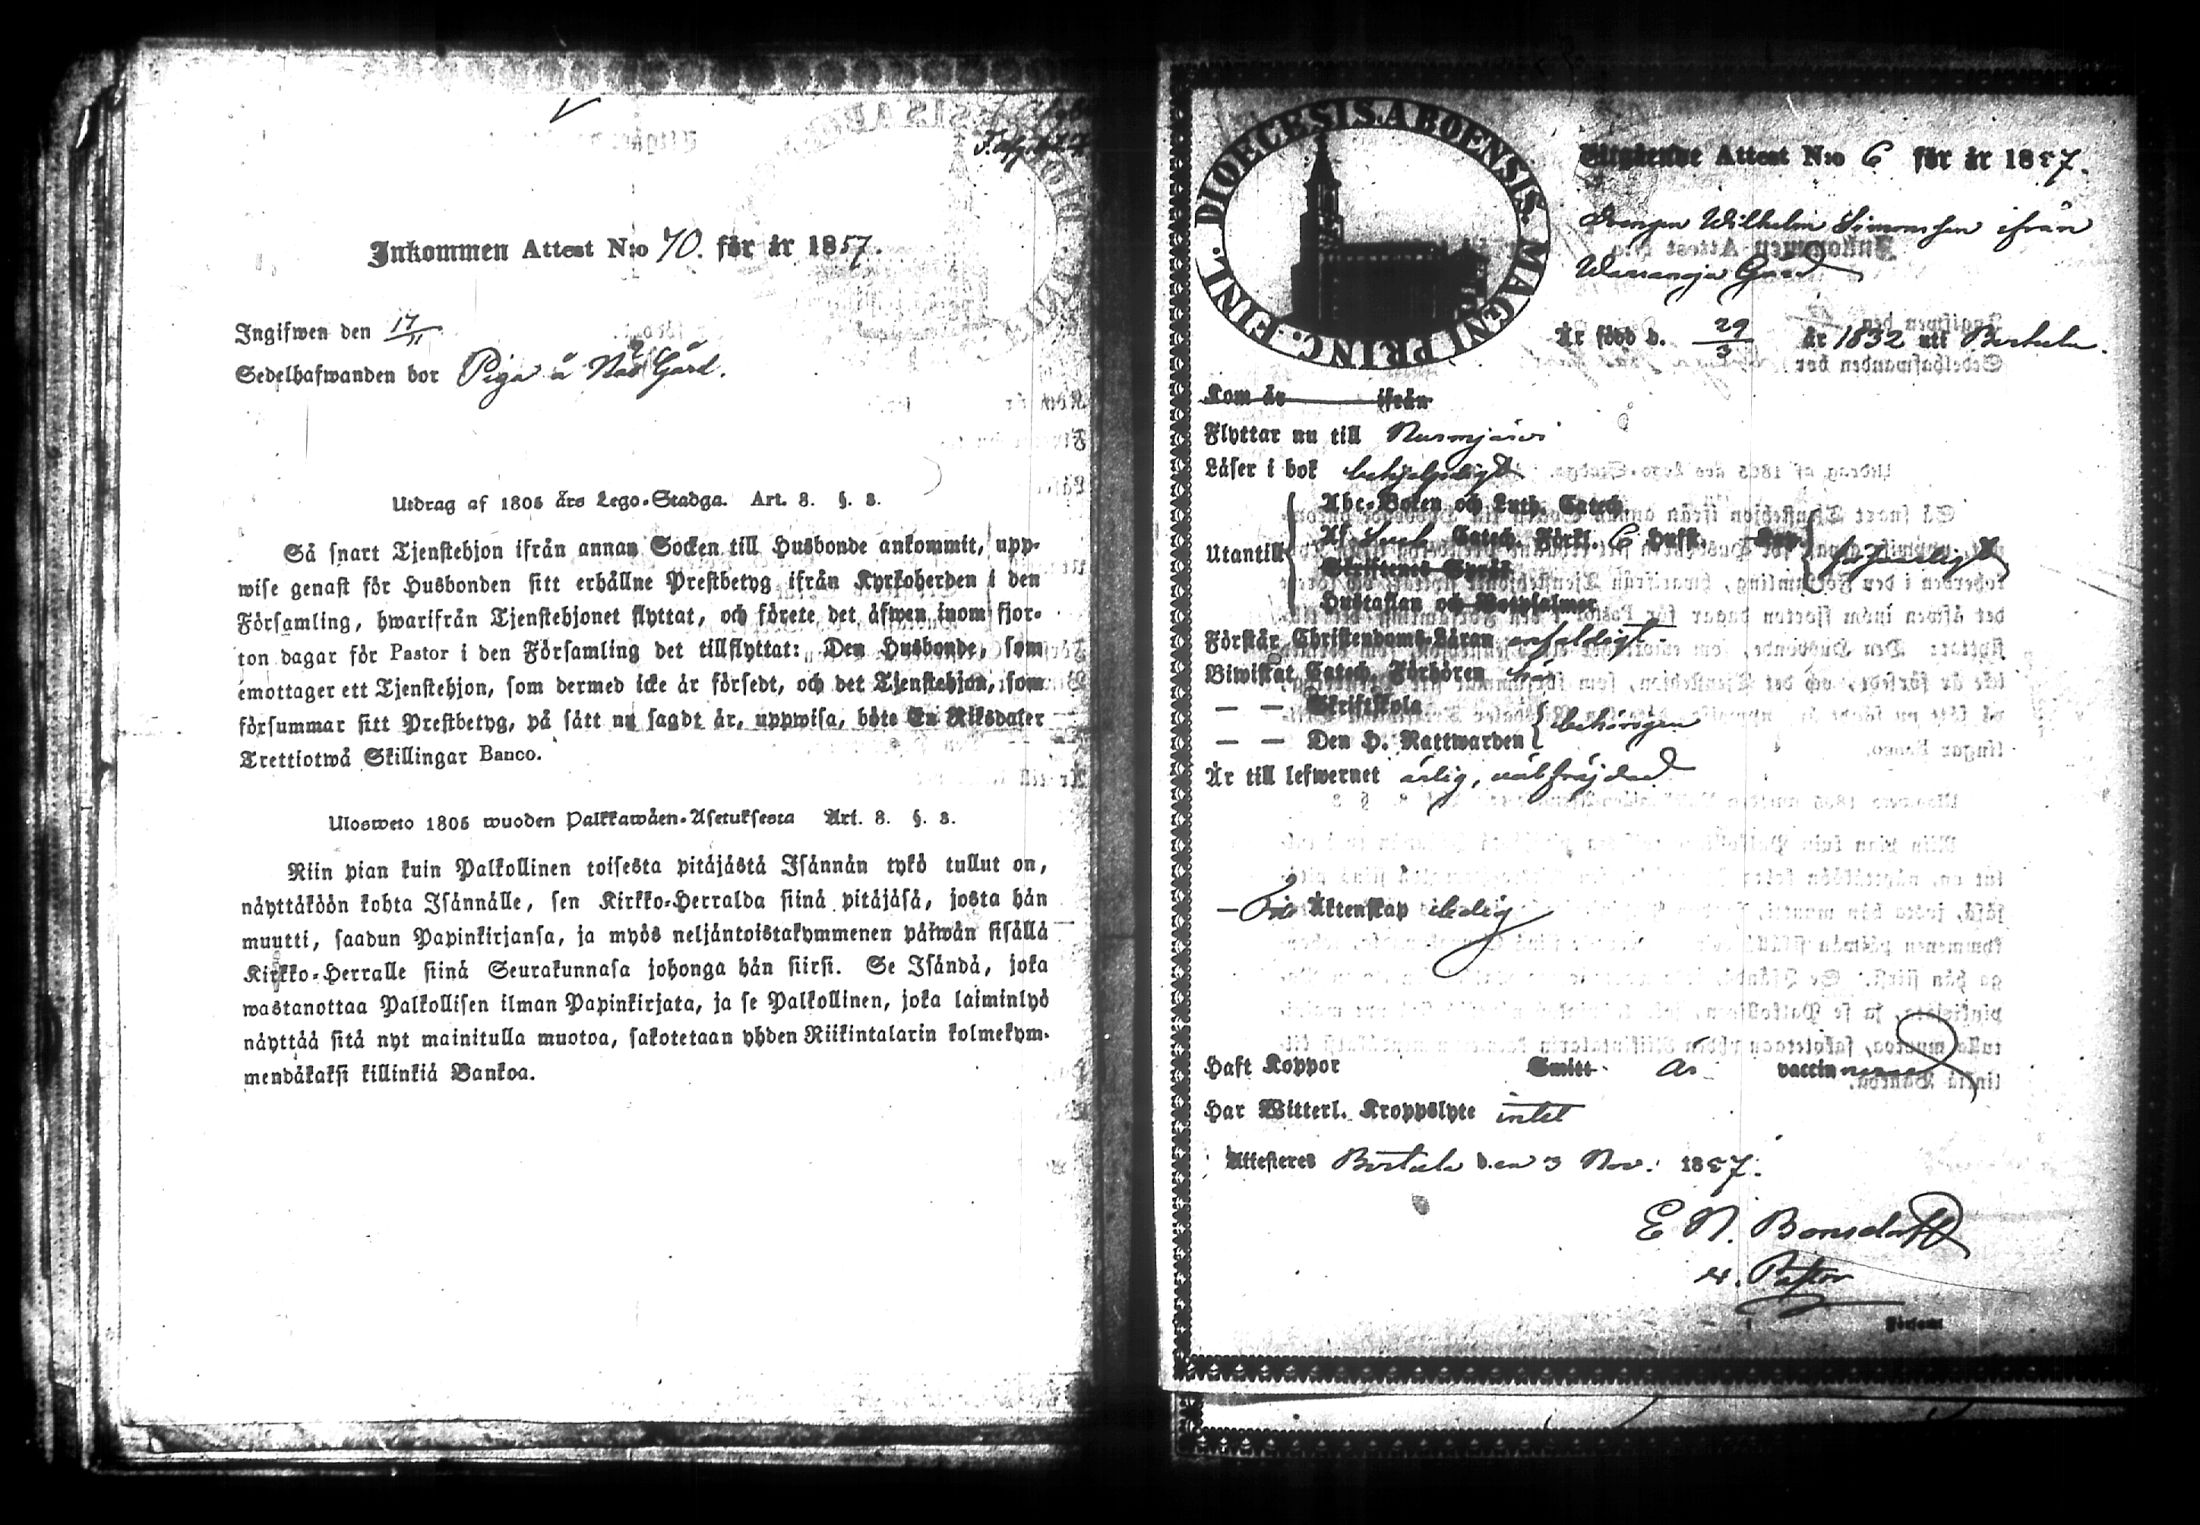 Inkommen Attest N:o 70. för år 1857.
Ingifwen den 17/11
Sedelhafwanden bor Piga å Näs Gård.
Utdrag af 1805 års Lego-Stadga. Art. 3. §. 3.
Så snart Tjenstehjon ifrån annan Socken till Husbonde ankommit, upp-
wise genast för Husbonden sitt erhållne Prestbetyg ifrån Kyrkoherden i den
Församling, hwarifrån Tjenstehjonet flyttat, och förete det äfwen inom fjor-
ton dagar för Pastor i den Församling det tillflyttat: Den Husbonde, som
emottager ett Tjenstehjon, som dermed icke är försedt, och det Tjenstehjon, som
försummar sitt Prestbetyg, på sätt nu sagdt är, uppwisa, böte En Riksdaler
Trettiotwå Skillingar Banco.
Ulosweto 1805 wuoden Palkkawäen-Asetuksesta Art. 3. §. 3.
Niin pian kuin Palkollinen toisesta pitäjästä Isännän tykö tullut on,
näyttäköön kohta Isännälle, sen Kirkko-Herralda siinä pitäjäsä, josta hän
muutti, saadun Papinkirjansa, ja myös neljäntoistakymmenen päiwän sisällä
Kirkko-Herralle siinä Seurakunnasa johonga hän siirsi. Se Isändä, joka
wastanottaa Palkollisen ilman Papinkirjata, ja se Palkollinen, joka laiminlyö
näyttää sitä nyt mainitulla muotoa, sakotetaan yhden Riikintalarin kolmekym-
mendäkaksi killinkiä Bankoa.
DIOECESIS. ABOENSIS. MAGNI PRINC. FINL.
Utgående Attest N:o 6 för år 1857.
Drengen Wilhelm Simonsson ifrån
Gård
Är född d. 29/3 år 1832 uti Bertula.
Kom år ifrån
Flyttar nu till Nurmijärvi
Läser i bok behjelpeligt
Utantill
Abc-Boken och Luth. Catech.
Af Catech. Förkl. 6 Hufst. Kap.
Skriftenes Språk
Hustaflan och Botpsalmer
Förstår Christendoms-Läran enfaldigt
Biwistat Catech. Förhören
— — Skriftskola
— — Den H. Nattwarden behörigen
Är till lefwernet ärlig, välfräjdad
Till Äktenskap ledig
Haft Koppor Smitt. Är vaccinerad
Har Witterl. Kroppslyte intet
Attesteres Bertula den 3 Nov. 1857.
E N. Bonsdorff
Pastor
Församl